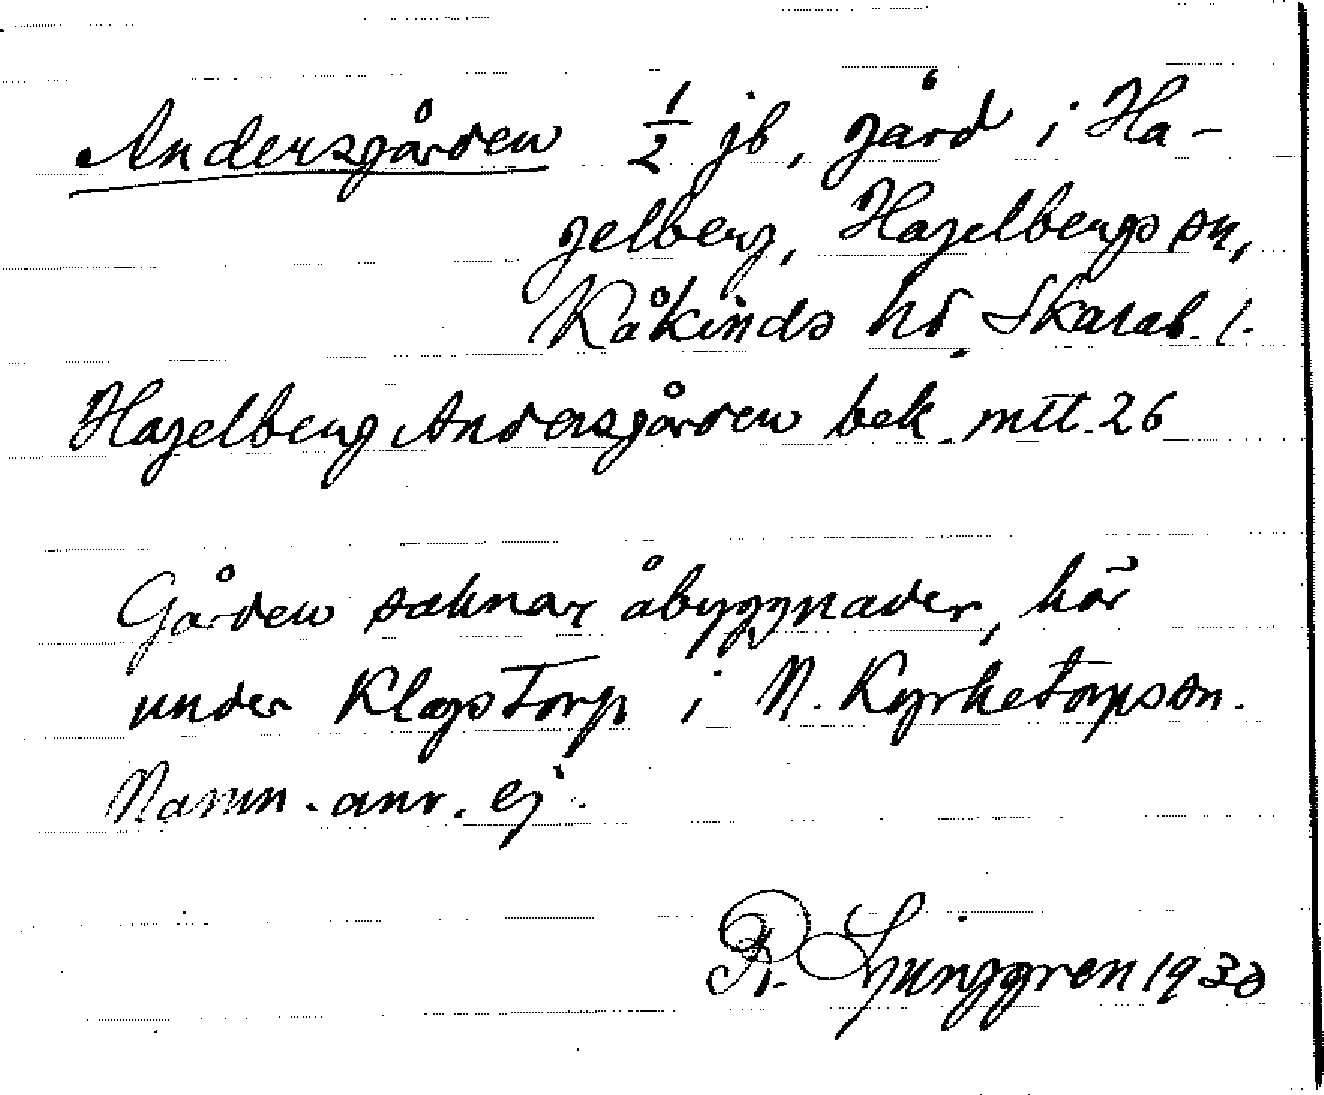 Andersgården 1/2 jb, gård i Ha-
gelberg, Hagelbergs sn,
Kåkinds hd Skarab. l.
Hagelberg Andersgården bek. mtt. 26
Gården saknar åbyggnader, hör
under Klagstorp i N. Kyrketorps sn.
Namn. anv. ej.
R. Ljunggren 1930